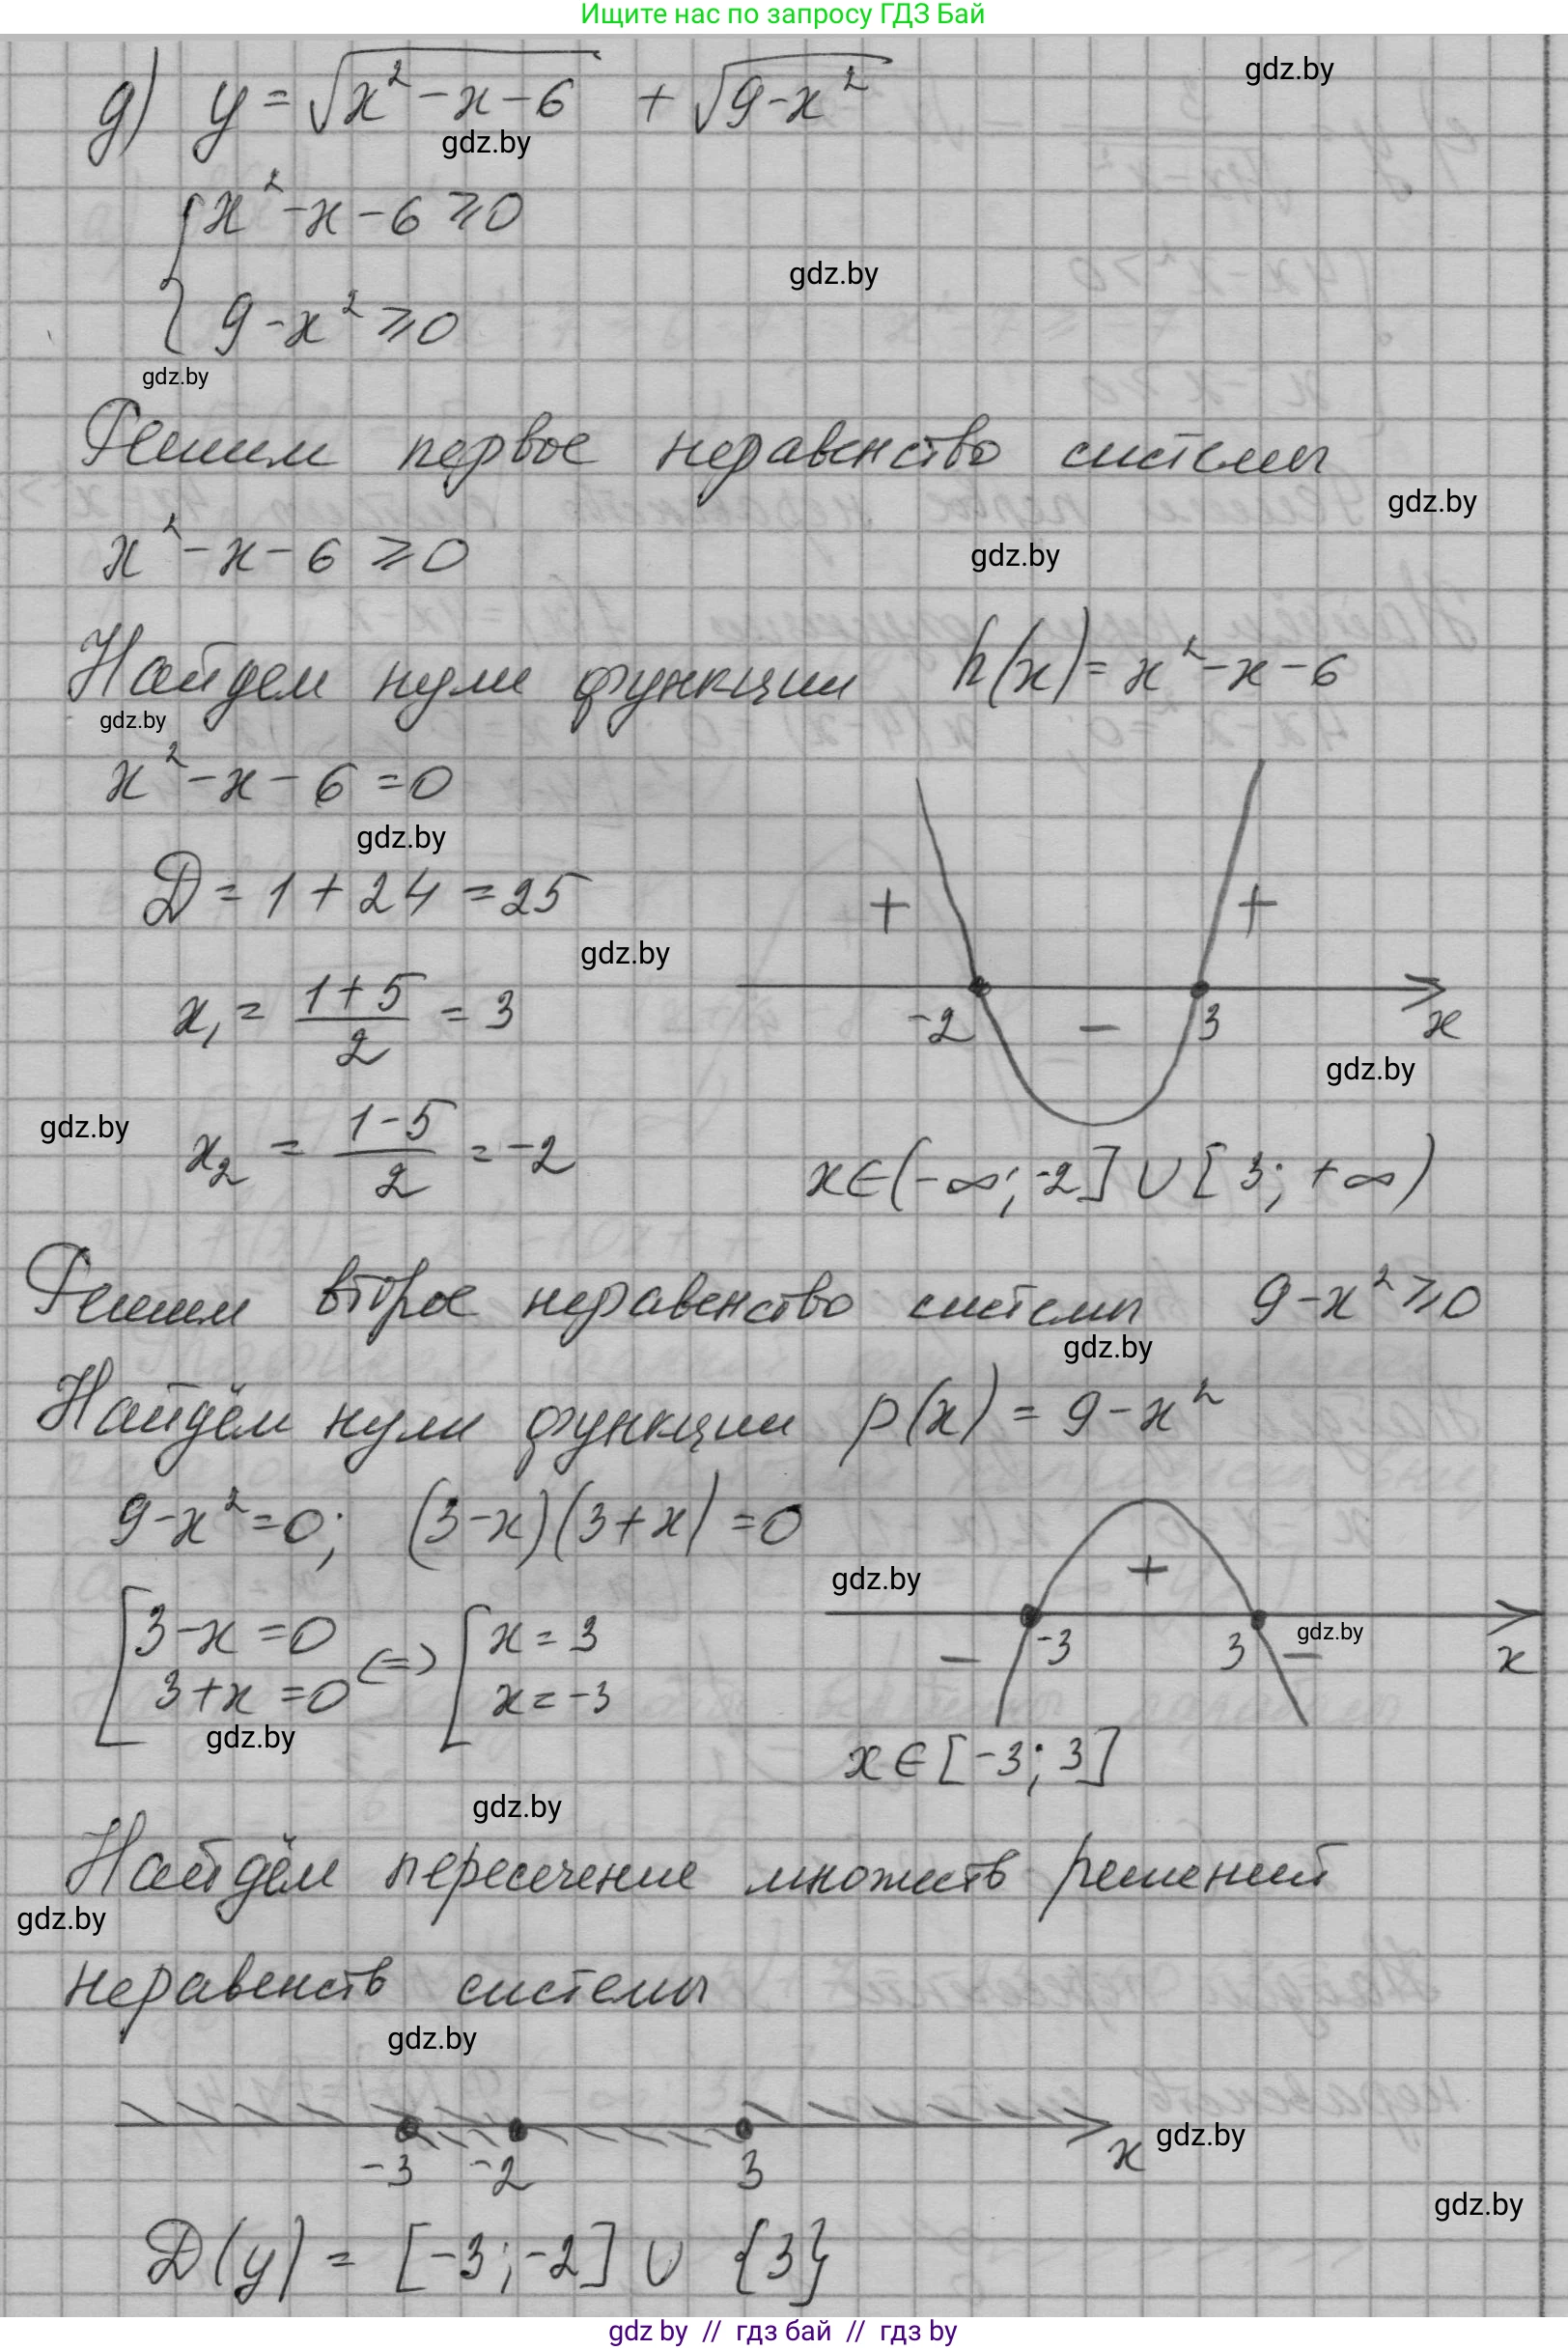 Ищите нас по запросу ГДЗ Бай
д) y = √(x² - x - 6) + √(9 - x²)
gdz.by
gdz.by
{ x² - x - 6 ≥ 0
gdz.by
9 - x² ≥ 0
gdz.by
Решим первое неравенство системы
gdz.by
x² - x - 6 ≥ 0
gdz.by
Найдем нули функции h(x) = x² - x - 6
gdz.by
x² - x - 6 = 0
gdz.by
D = 1 + 24 = 25
+ +
gdz.by
x₁ = (1 + 5)/2 = 3
-2 - 3 x
gdz.by
gdz.by
x₂ = (1 - 5)/2 = -2
x ∈ (-∞; -2] ∪ [3; +∞)
Решим второе неравенство системы 9 - x² ≥ 0
gdz.by
Найдём нули функции p(x) = 9 - x²
9 - x² = 0; (3 - x)(3 + x) = 0
gdz.by
+
[ 3 - x = 0 <=> [ x = 3
3 + x = 0 x = -3
gdz.by
- -3 3 - x
gdz.by
x ∈ [-3; 3]
gdz.by
Найдём пересечение множеств решений
gdz.by
неравенств системы
gdz.by
gdz.by
-3 -2 3 x
gdz.by
D(y) = [-3; -2] ∪ {3}
gdz.by // гдз бай // гдз by